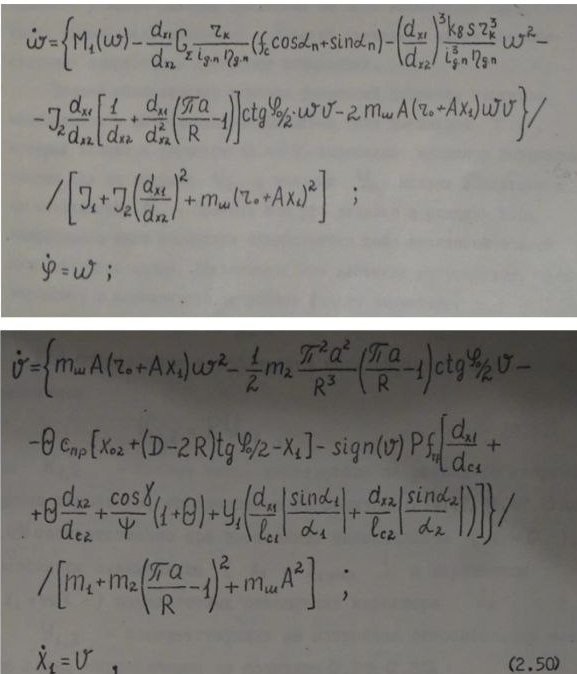 ω̇={M₁(ω)-(d_x1/d_x2)G_Σ(r_к/(i_g.п η_g.п))(f_c cosα_п+sinα_п)-(d_x1/d_x2)³(k_в s r_к³/(i³_g.п η_g.п))ω²-
-J₂(d_x1/d_x2)[1/d_x2+(d_x1/d²_x2)(πa/R-1)]ctgφ₀/2·ωv-2m_ш A(r₀+Ax₁)ωv}/
/[J₁+J₂(d_x1/d_x2)²+m_ш(r₀+Ax₁)²] ;
φ̇=ω ;
v̇={m_ш A(r₀+Ax₁)ω²-(1/2)m₂(π²a²/R³)(πa/R-1)ctgφ₀/2 v-
-Θc_пр[x₀₂+(D-2R)tgφ₀/2-x₁]-sign(v)Pf_тр[d_x1/d_c1+
+Θ(d_x2/d_c2)+(cosγ/ψ)(1+Θ)+y₁((d_x1/l_c1)|sinα₁/α₁|+(d_x2/l_c2)|sinα₂/α₂|)]}/
/[m₁+m₂(πa/R-1)²+m_ш A²] ;
ẋ₁=v , (2.50)